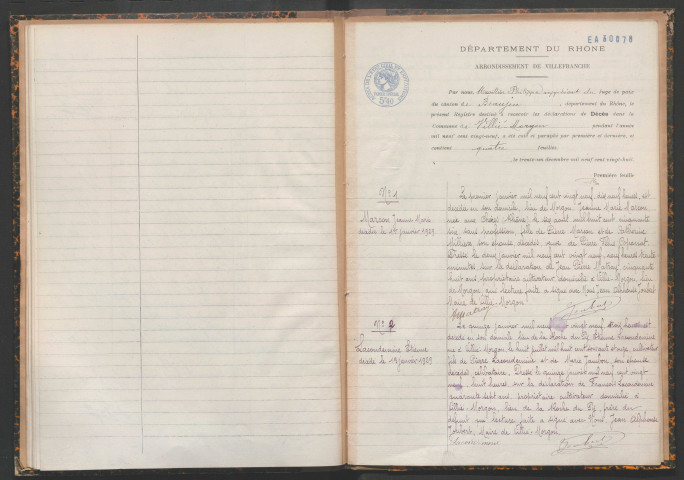 EA 80078
DÉPARTEMENT DU RHÔNE
ARRONDISSEMENT DE VILLEFRANCHE
Par nous, suppléant du Juge de paix
du canton de Beaujeu, département du Rhône, le
présent Registre destiné à recevoir les déclarations de Décès dans la
Commune de Villié-Morgon pendant l'année
mil neuf cent vingt-neuf, a été coté et paraphé par première et dernière, et
contient quatre feuilles
, le trente-un décembre mil neuf cent vingt-huit.
Première feuille
N° 1
Marcon Jeanne Marie
décédée le 1er janvier 1929
Le premier janvier mil neuf cent vingt neuf, dix neuf heures, est
décédée en son domicile, lieu de Morgon, Jeanne Marie Marcon
née aux (Rhône) le août mil huit cent cinquante
six, sans profession, fille de Pierre Marcon et de Catherine
son épouse décédés, veuve de Pierre
Dressé le deux janvier mil neuf cent vingt neuf, neuf heures trente
minutes, sur la déclaration de Jean Pierre cinquante
huit ans, propriétaire cultivateur domicilié à Villié-Morgon, lieu
de Morgon, qui lecture faite a signé avec Nous Jean Alphonse Joubert
Maire de Villié-Morgon.
Joubert
N° 2
Lacondemine Etienne
décédé le 15 janvier 1929
Le quinze janvier mil neuf cent vingt neuf, trois heures est
décédé en son domicile lieu de la Roche du Py Etienne Lacondemine
né à Villié-Morgon, le huit juillet mil huit cent soixante et onze, cultivateur
fils de Pierre Lacondemine et de Marie Jambon, son épouse
décédés, célibataire. Dressé le quinze janvier mil neuf cent vingt
neuf, huit heures, sur la déclaration de François Lacondemine
quarante sept ans, propriétaire cultivateur domicilié à
Villié-Morgon, lieu de la Roche du Py, frère du
défunt qui lecture faite a signé avec Nous Jean Alphonse
Joubert, Maire de Villié-Morgon.
Lacondemine
Joubert